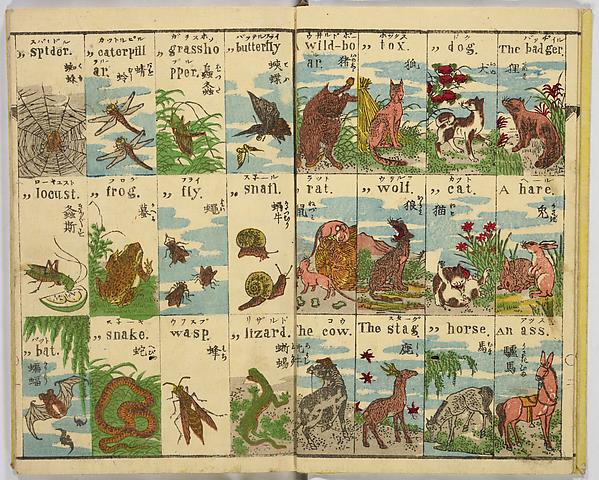 The badger.
狸
ドグ
„ dog.
犬
ホックス
„ fox.
狐
„ wild-bo
ar.
猪
バッタルフライ
„ butterfly
蛺蝶
„ grassho
pper.
螽
カットルピル
„ caterpill
ar.
蜻蛉
スパイドル
„ spider.
蜘蛛
ヘール
A hare.
兎
カット
„ cat.
猫
ウヲルフ
„ wolf.
狼
ラット
„ rat.
鼠
スネール
„ snail.
蝸牛
フライ
„ fly.
蠅
フロク
„ frog.
蟇
ローキュスト
„ locust.
螽斯
アッス
An ass.
驢馬
„ horse.
馬
スターグ
The stag
鹿
コウ
The cow.
リザルド
„ lizard.
蜥蜴
ウヲスプ
„ wasp.
蜂
スネーキ
„ snake.
蛇
バット
„ bat.
蝙蝠